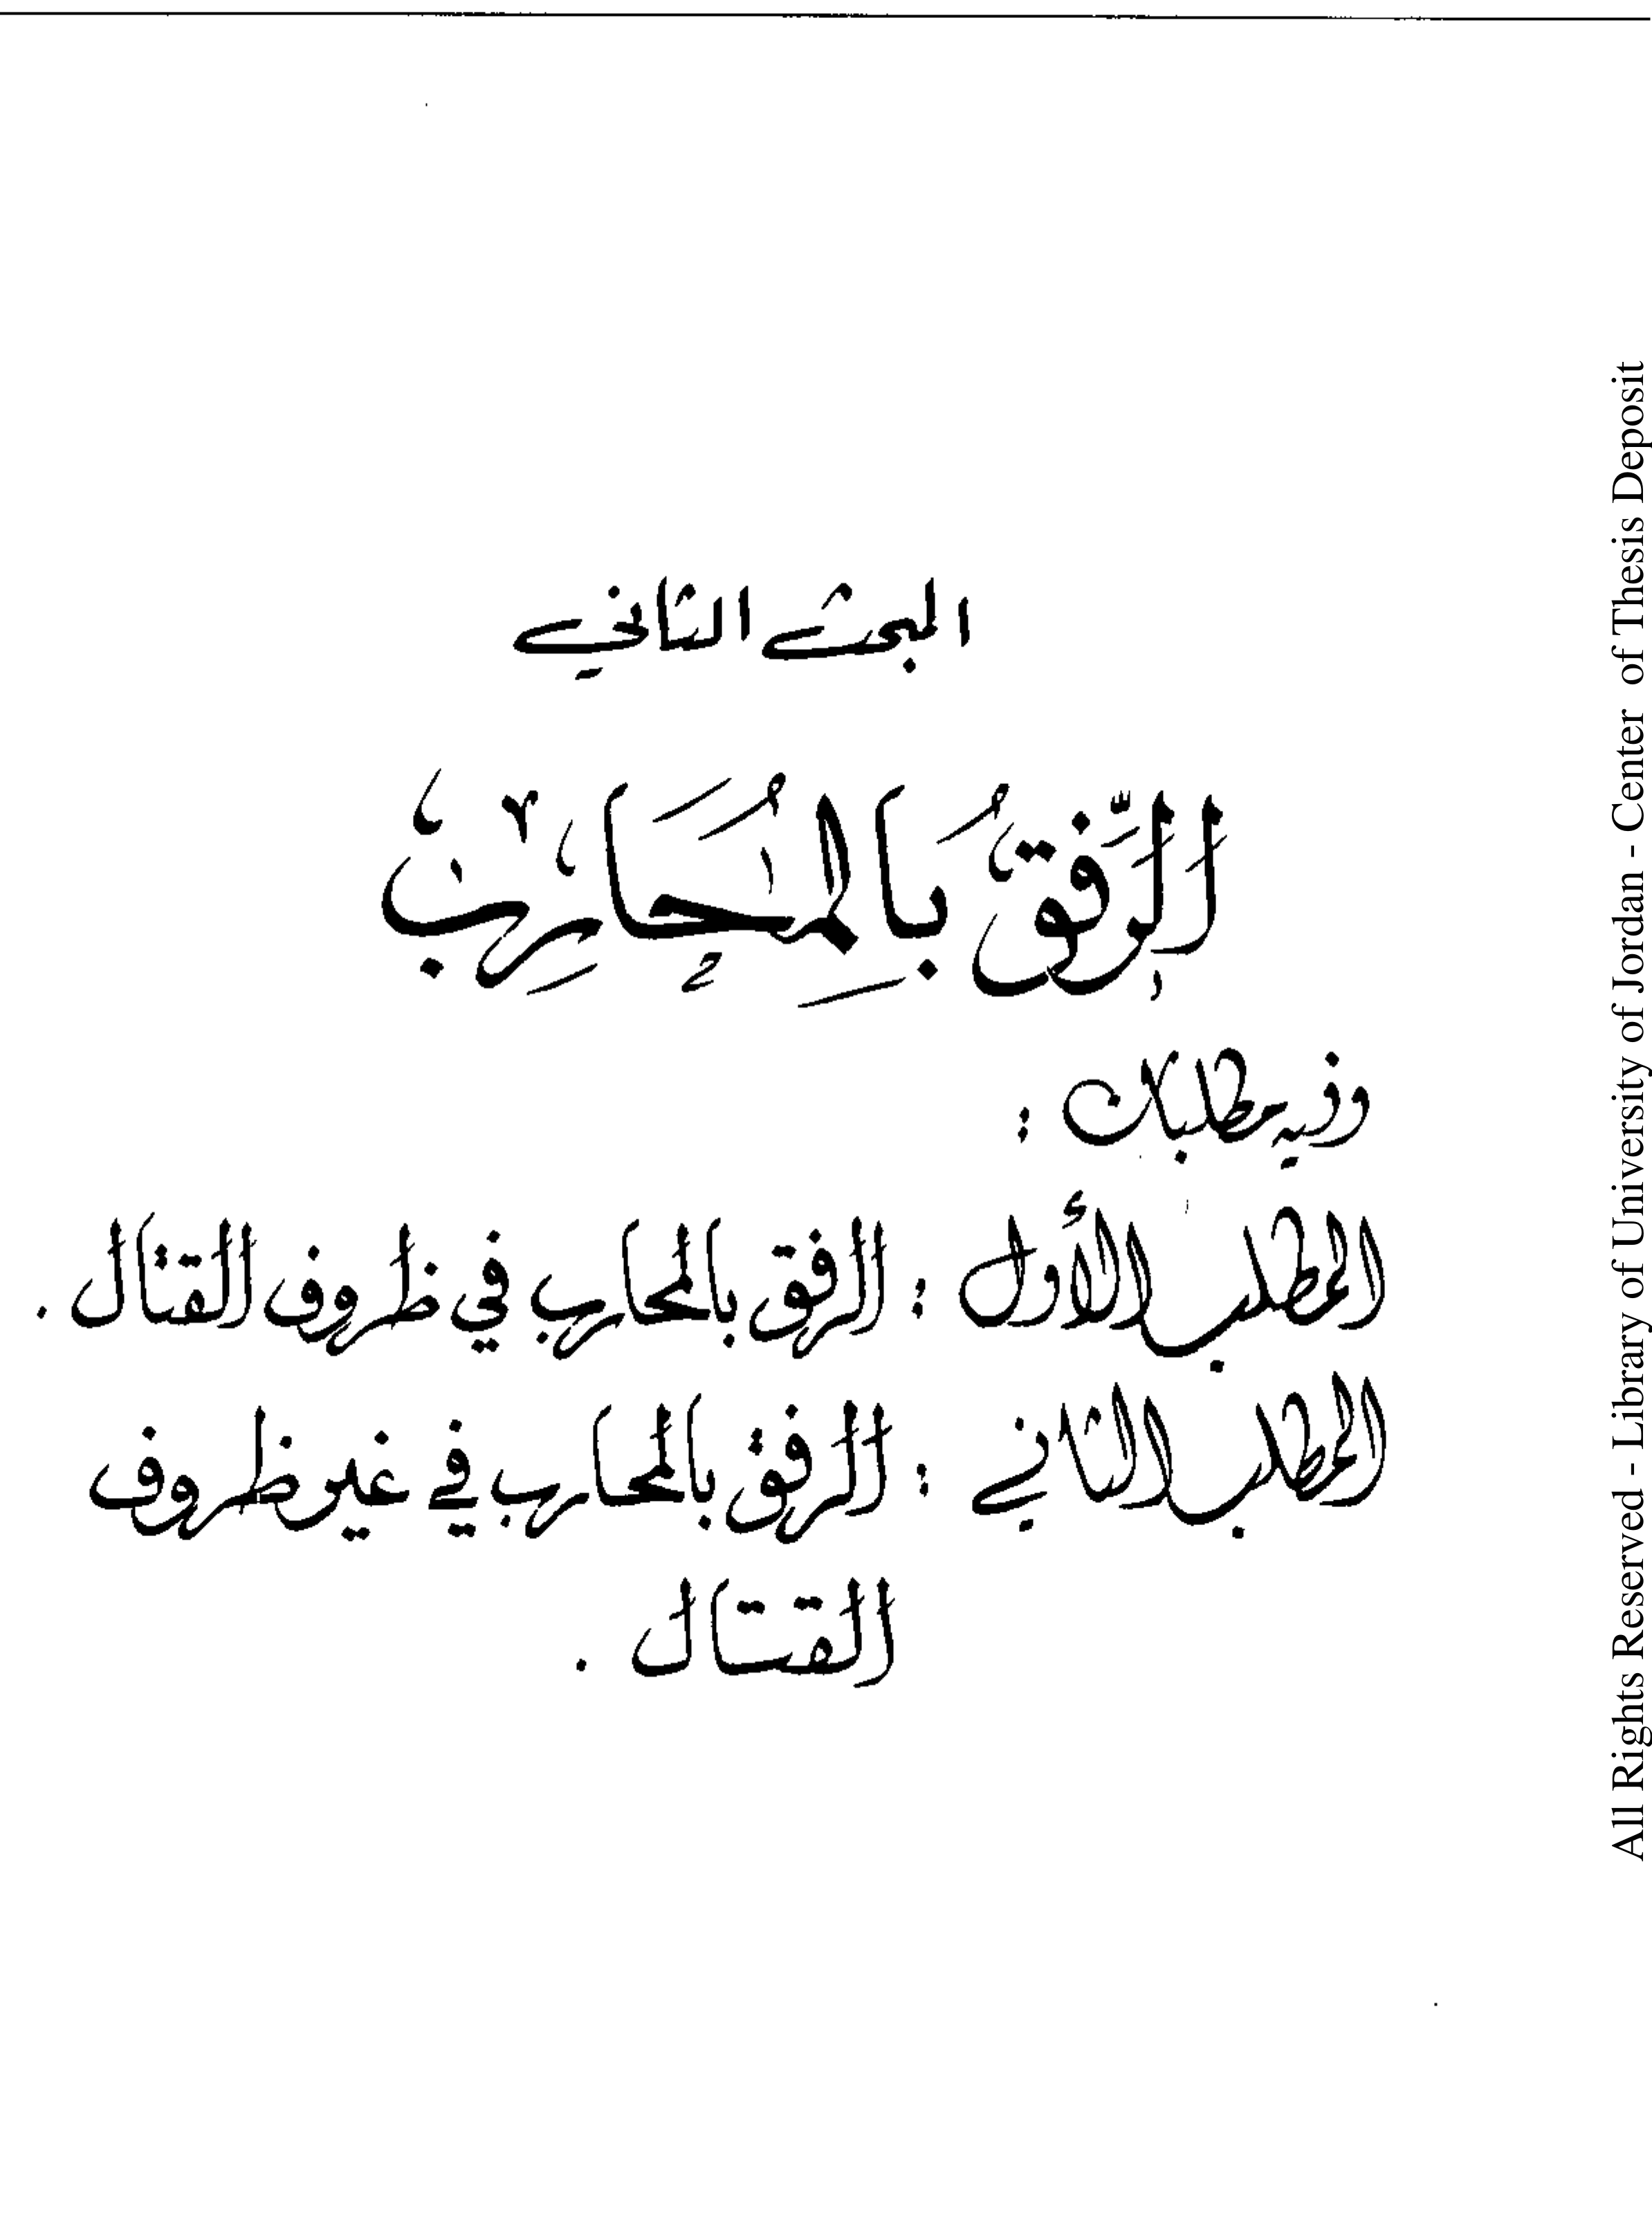 المبحث الثاني
الرِّفقُ بِالمُحَارِبْ
وفيه مطلبان :
المطلب الأول : الرفق بالمحارب في ظروف القتال .
المطلب الثاني : الرفق بالمحارب في غير ظروف
القتال .
All Rights Reserved - Library of University of Jordan - Center of Thesis Deposit